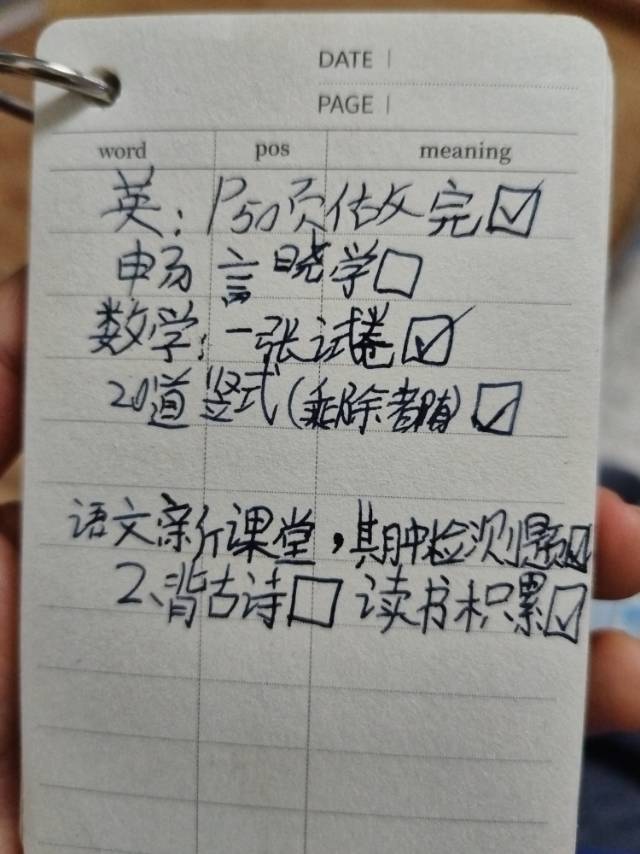 DATE
PAGE
word pos meaning
英：P50页做完
畅言晓学
数学：一张试卷
20道竖式（乘除都有）
语文亲斤课堂，其期中检测题
2、背古诗 读书积累